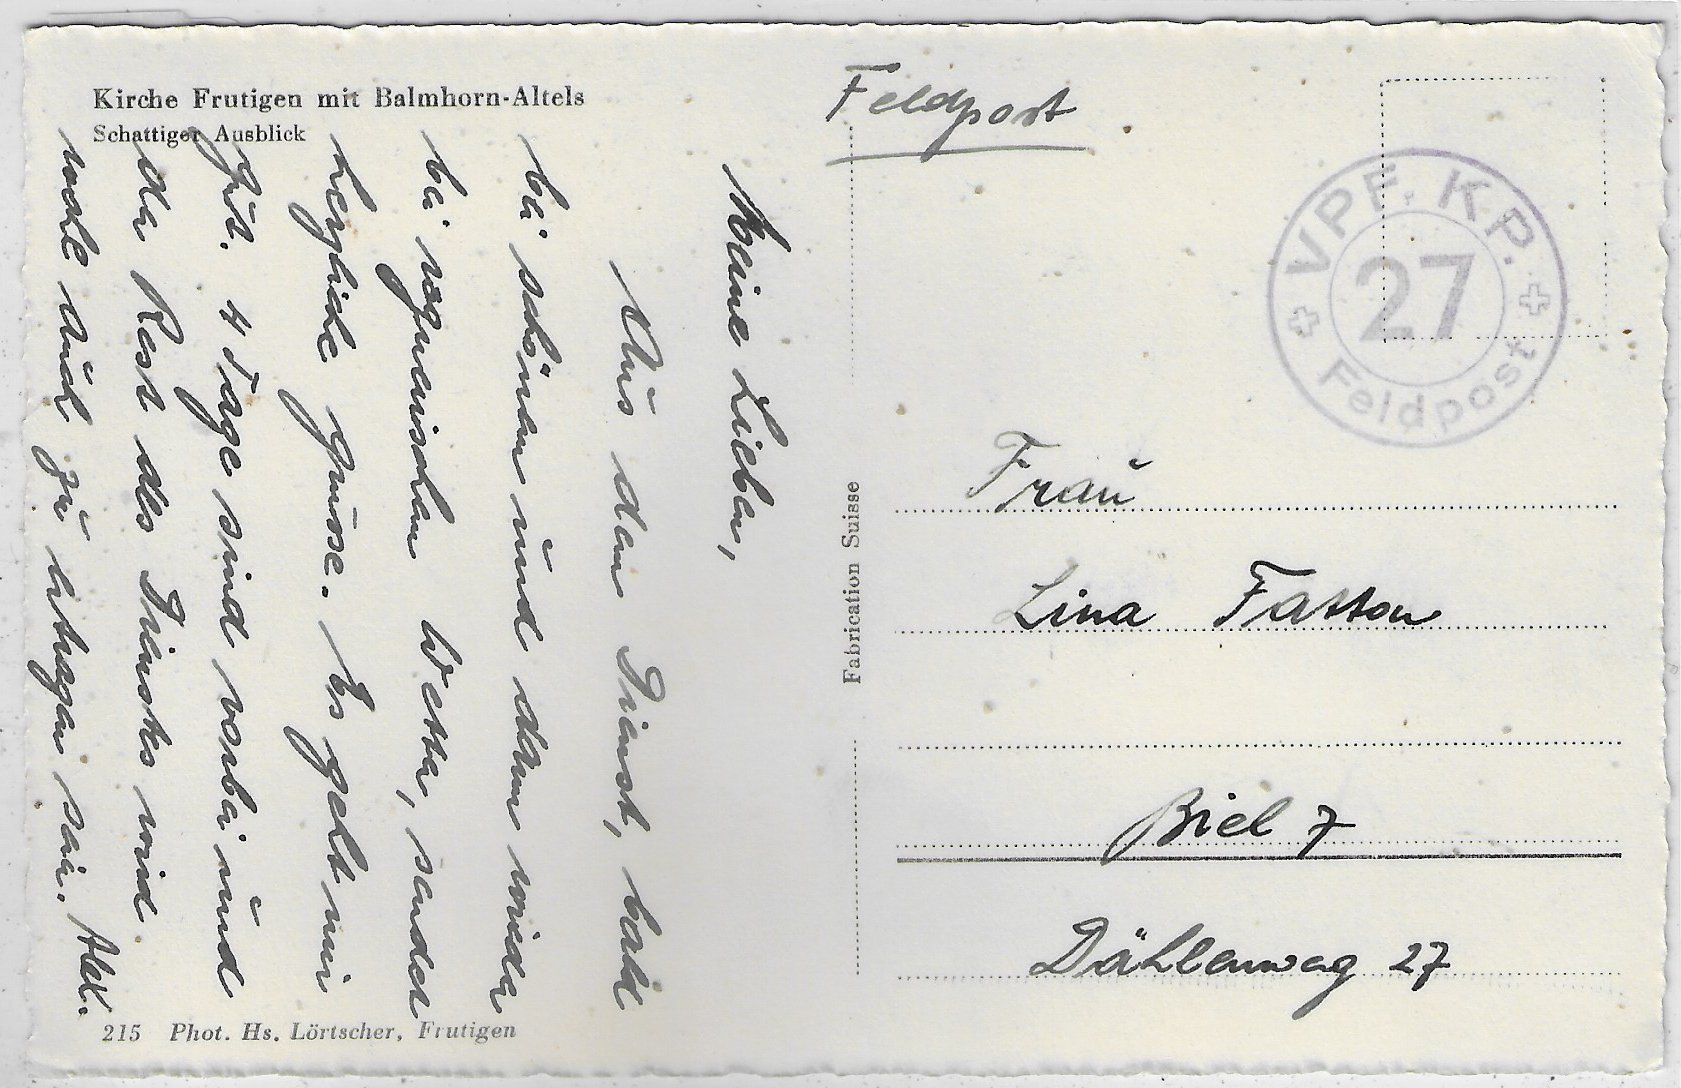 Kirche Frutigen mit Balmhorn-Altels
Schattiger Ausblick
Meine Lieben,
Aus dem Dienst, bald
bei schönem und dann wieder
bei regnerischem Wetter, sendet
herzliche Grüsse. Es geht mir
gut. 4 Tage sind vorbei und
der Rest des Dienstes wird
wohl auch zu ertragen sein.
215 Phot. Hs. Lörtscher, Frutigen
Fabrication Suisse
Feldpost
VPF. KP.
27
Feldpost
Frau
Lina Fatton
Biel 7
Dählenweg 27